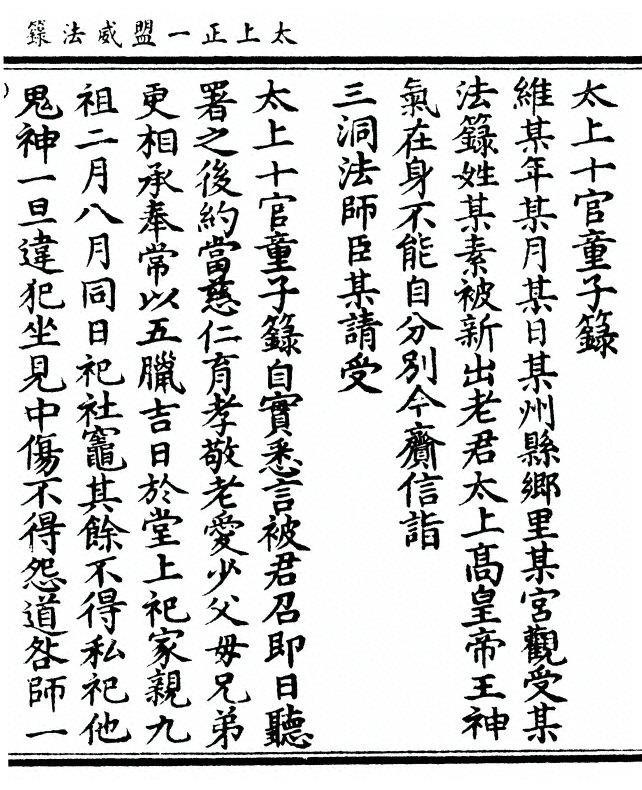 太上正一盟威法籙
太上十官童子籙
維某年某月某日某州縣鄉里某宮觀受某
法籙姓某素被新出老君太上高皇帝王神
氣在身不能自分別今齎信詣
三洞法師臣某請受
太上十官童子籙自實悉言被君召即日聽
署之後約當慈仁育孝敬老愛少父母兄弟
更相承奉常以五臘吉日於堂上祀家親九
祖二月八月同日祀社竈其餘不得私祀他
鬼神一旦違犯坐見中傷不得怨道咎師一